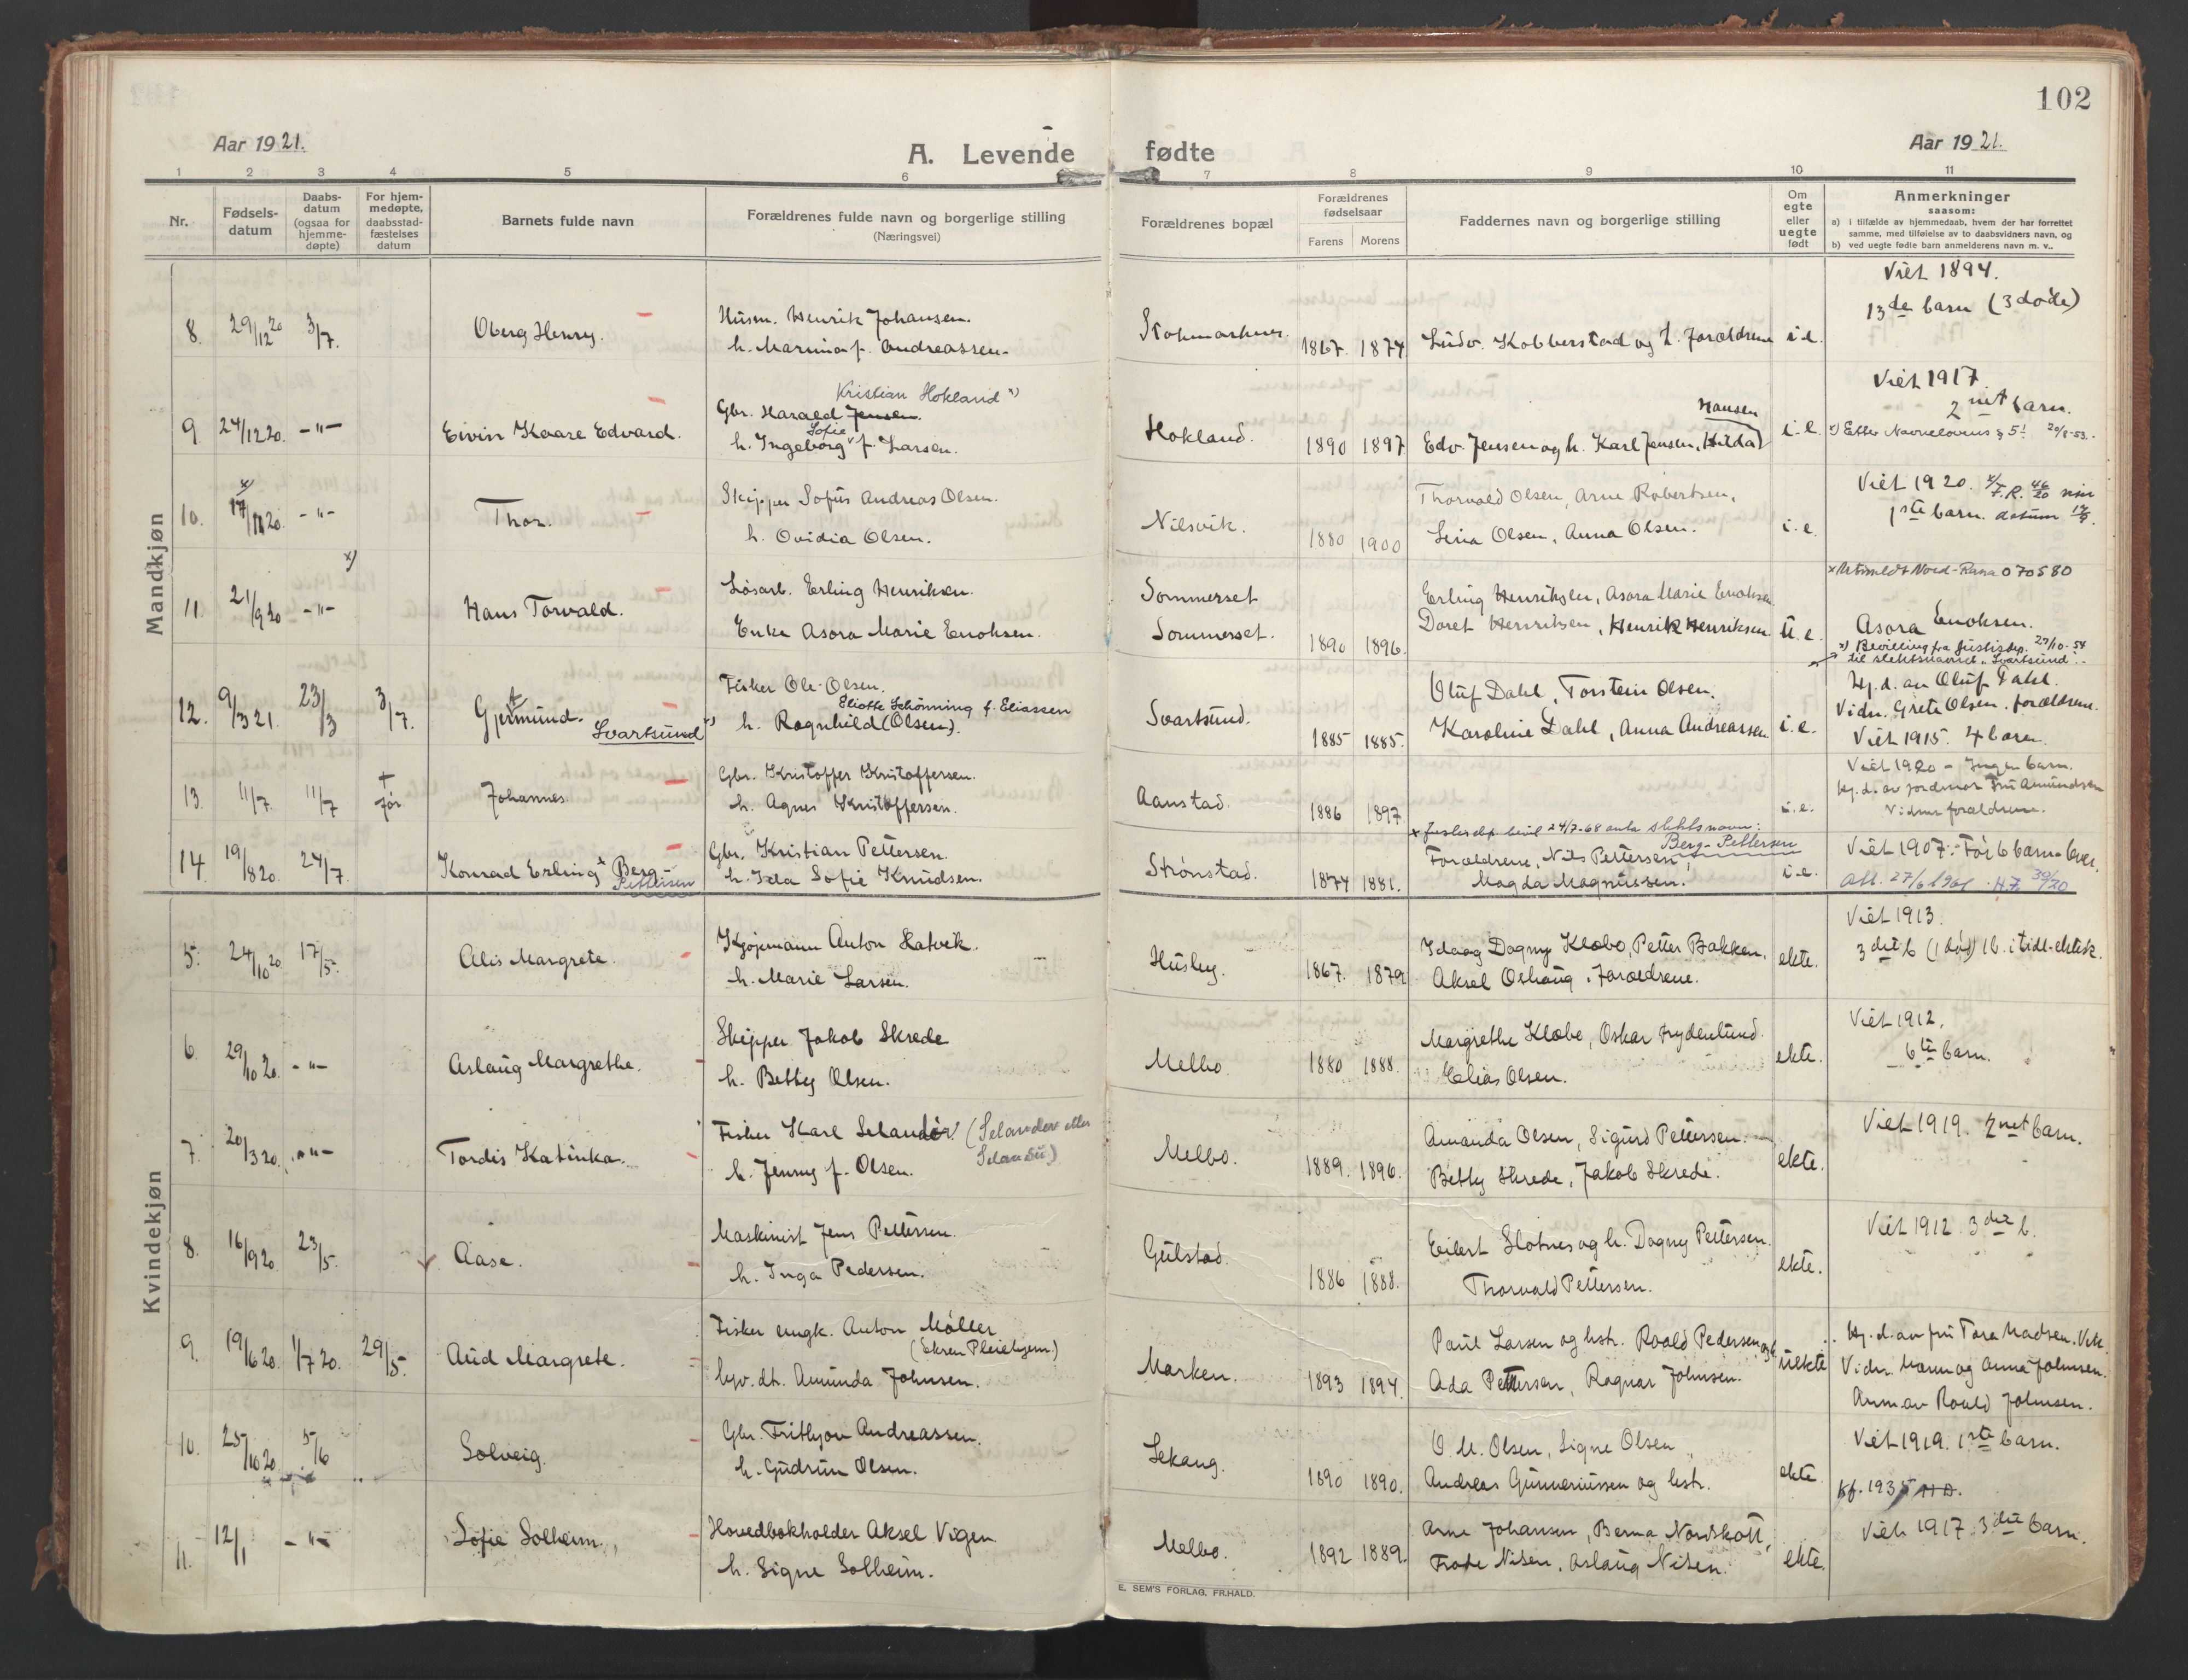 102
Aar 1921.
A. Levende fødte
Aar 1921.
1 2 3 4 5 6 7 8 9 10 11
Nr.
Fødsels-
datum
Daabs-
datum
(ogsaa for
hjemme-
døpte)
For hjem-
medøpte,
daabsstad-
fæstelses
datum
Barnets fulde navn
Forældrenes fulde navn og borgerlige stilling
(Næringsvei)
Forældrenes bopæl
Forældrenes
fødselsaar
Farens Morens
Faddernes navn og borgerlige stilling
Om
egte
eller
uegte
født
Anmerkninger
saasom:
a) i tilfælde av hjemmedaab, hvem der har forrettet
samme, med tilføielse av to daabsvidners navn, og
b) ved uegte fødte barn anmelderens navn m. v..
Mandkjøn
8. 29/12 20 3/7. Oberg Henry.
Husm. Henrik Johansen.
h. Marina f. Andreassen.
1867. 1874
Ludv. Kobberstad og h. Forældrene i.e.
Viet 1894.
13de barn (3 døde)
9 24/12 20. -"- Eivin Kaare Edvard.
Kristian Hokland x)
Gbr. Harald Jensen.
Sofie
h. Ingeborg f. Larsen.
Hokland. 1890 1897
Hansen
Edv. Jensen og h. Karl Jensen, Hilda i.e.
Viet 1917.
2net barn.
x) Efter Navnelovens § 5! 20/8-53.
10. x) 17/11 20. -"- Thor.
Skipper Sofus Andreas Olsen.
h. Ovidia Olsen.
Nilsvik. 1880 1900
Thorvald Olsen, Arne Robertsen,
Lina Olsen, Anna Olsen. i.e.
Viet 1920.
1ste barn. datum
11. 21/9 20 -"- x) Hans Torvald.
Løsarb. Erling Henriksen.
Enke Asora Marie Enoksen.
Sommerset
Sommerset. 1890 1896.
Erling Henriksen, Asora Marie Enoksen
Doret Henriksen, Henrik Henriksen u.e.
x Utmeldt Nord-Rana 070580
Asora Enoksen.
x) Bevilling fra Justisdep. 27/10-54
til slektsnavnet "Svartsund".
12. 9/3 21. 23/3 3/7. Gjermund. Svartsund x)
Fisker Ole Olsen.
Eliotte Schønning f. Eliassen
h. Ragnhild (Olsen).
Svartsund. 1885 1885.
Oluf Dahl, Torstein Olsen.
Karoline Dahl, Anna Andreassen i.e.
Hj.d. av Oluf Dahl.
Vidn. Grete Olsen, forældrene.
Viet 1915. 4 barn.
13. 11/7. 11/7 + før Johannes.
Gbr. Kristoffer Kristoffersen.
h. Agnes Kristoffersen.
Aanstad. 1886 1897 i.e.
Viet 1920 - Ingen barn.
Hj.d. av jordmor Fru Amundsen
Vidner forældrene.
14 19/8 20. 24/7. Konrad Erling x Berg-
Pettersen
Gbr. Kristian Pettersen.
h. Ida Sofie Knudsen.
Strønstad. 1874 1881.
x Justisdep bevil 24/7-68 anta slektsnavn:
Berg-Pettersen
Forældrene, Nils Pettersen,
Magda Magnussen. i.e.
Viet 1907. Før 6 barn lever.
Att. 27/6 1961. H.F. 39/20
Kvindekjøn
5. 24/10 20 17/5. Alis Margrete.
Kjøpmann Anton Hatvik.
h. Marie Larsen.
Husby. 1867. 1879
Ida og Dagny Klæbo, Petter Bakken,
Aksel Oshaug. Forældrene. ekte.
Viet 1913.
3die b (1 død) 1 b. i tidl. ektesk.
6. 29/10 20. -"- Aslaug Margrethe.
Skipper Jakob Skrede
h. Betty Olsen.
Melbo. 1880 1888.
Margrethe Klæbo, Oskar Frydenlund.
Elias Olsen. ekte.
Viet 1912.
6te barn.
7. 20/3 20. -"- Tordis Katinka.
Fisker Karl Selander. (Selander eller
h. Jenny f. Olsen.
Melbo. 1889. 1896.
Amanda Olsen, Sigurd Pettersen.
Betty Skrede, Jakob Skrede. ekte.
Viet 1919. 2net barn.
8. 16/9 20. 23/5. Aase.
Maskinist Jens Pettersen.
h. Inga Pedersen.
Gulstad. 1886 1888.
Eilert Slotnes og h. Dagny Pettersen.
Thorvald Pettersen. ekte.
Viet 1912. 3die b.
9. 19/6 20. 1/7 20. 29/5. Aud Margrete.
Fisker ungk. Anton Møller
(Ekren Pleiehjem)
Gbr. dt. Amunda Johnsen.
Marken. 1893 1894.
Paul Larsen og hstr. Roald Pedersen og h.
Ada Pettersen, Ragnar Johnsen. uekte
Hj.d. av fru Tora Madsen. Vik.
Vidn. Marn og Anna Johnsen.
Anm. av Roald Johnsen.
10. 25/10 20. 5/6 Solveig.
Gbr. Frithjov Andreassen.
h. Gudrun Olsen.
Lekang. 1890 1890.
O. M. Olsen, Signe Olsen
Andreas Gunneriussen og hstr. ekte.
Viet 1919. 1ste barn.
Kf. 1935
11. 12/1 -"- Sofie Solheim.
Hovedbokholder Aksel Vigen
h. Signe Solheim.
Melbo. 1892 1889.
Arne Johansen, Berna Nordskott,
Frode Nisen, Aslaug Nisen. ekte.
Viet 1917. 3die barn.
E. SEM'S FORLAG, FR.HALD.